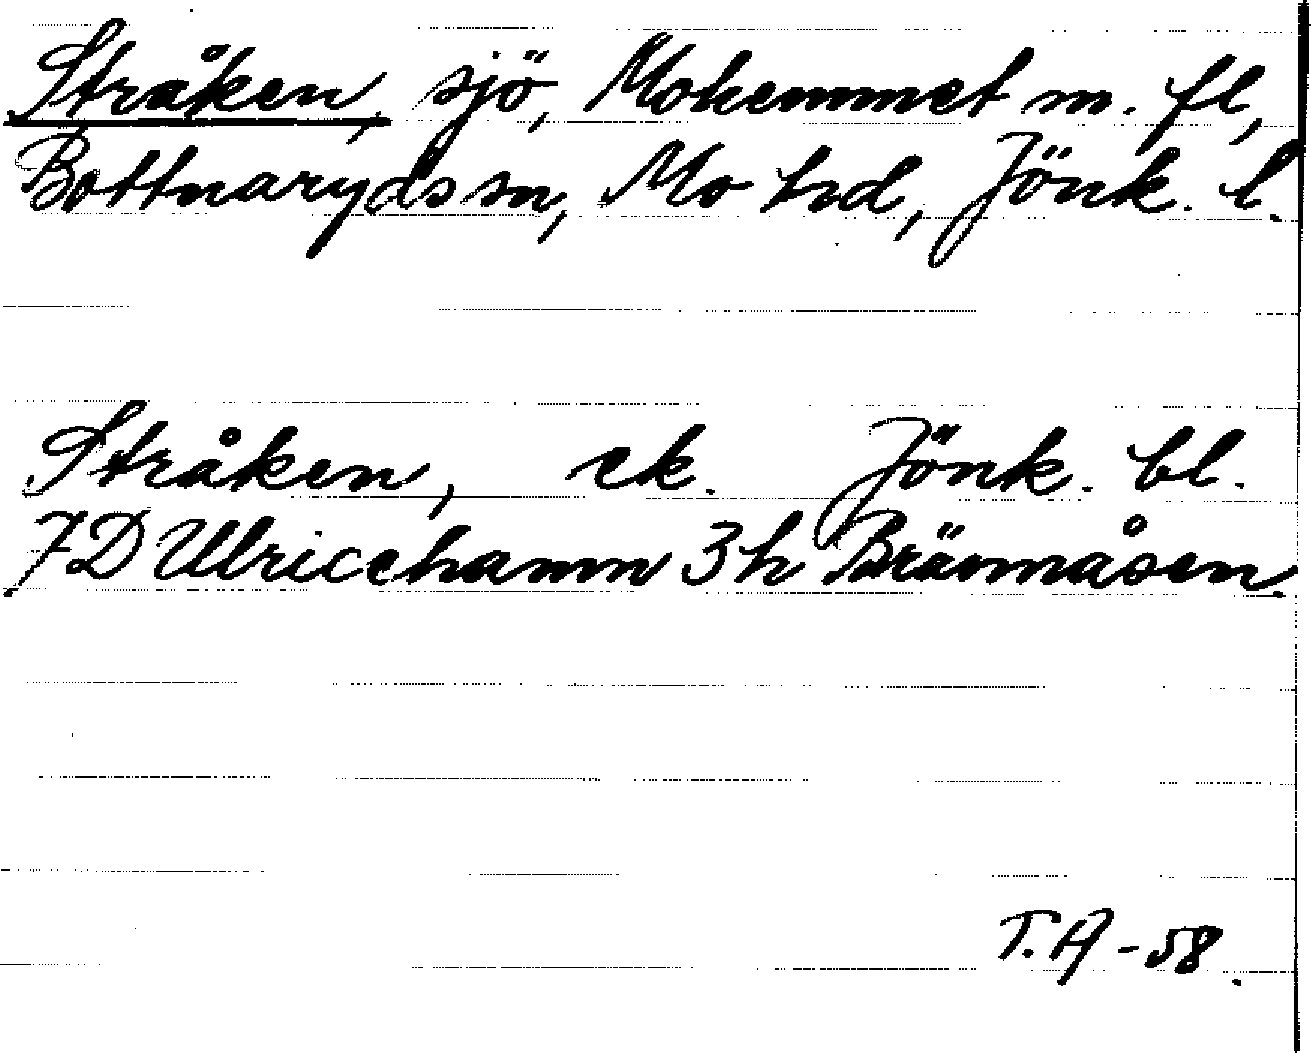 Stråken, sjö, Mohemmet m. fl,
Bottnaryds sn, Mo hd, Jönk. l.
Stråken, ek. Jönk. bl.
7D Ulricehamn 3h Brännåsen.
T.A -58.